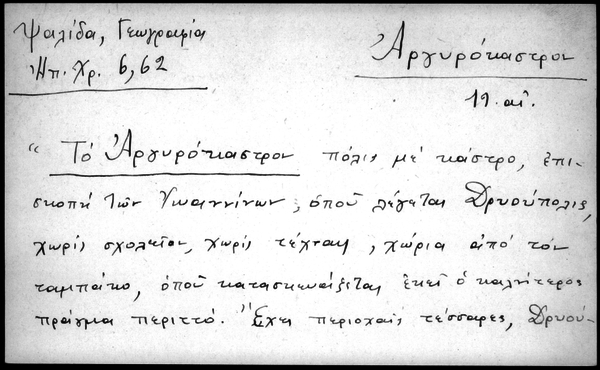 Ψαλίδα, Γεωγραφία
Ἠπ. Χρ. 6, 62
Ἀργυρόκαστρον
19. αἰ.
“ Τό Ἀργυρόκαστρον πόλις μέ κάστρο, ἐπι-
σκοπή τῶν Ἰωαννίνων, ὁποῦ λέγεται Δρυούπολις,
χωρίς σχολεῖον, χωρίς τέχναις, χώρια ἀπό τόν
ταμπάκο, ὁποῦ κατασκευάζεται ἐκεῖ ὁ καλήτερος
πρᾶγμα περιττό. Ἔχει περιοχαίς τέσσαρες, Δρυού-